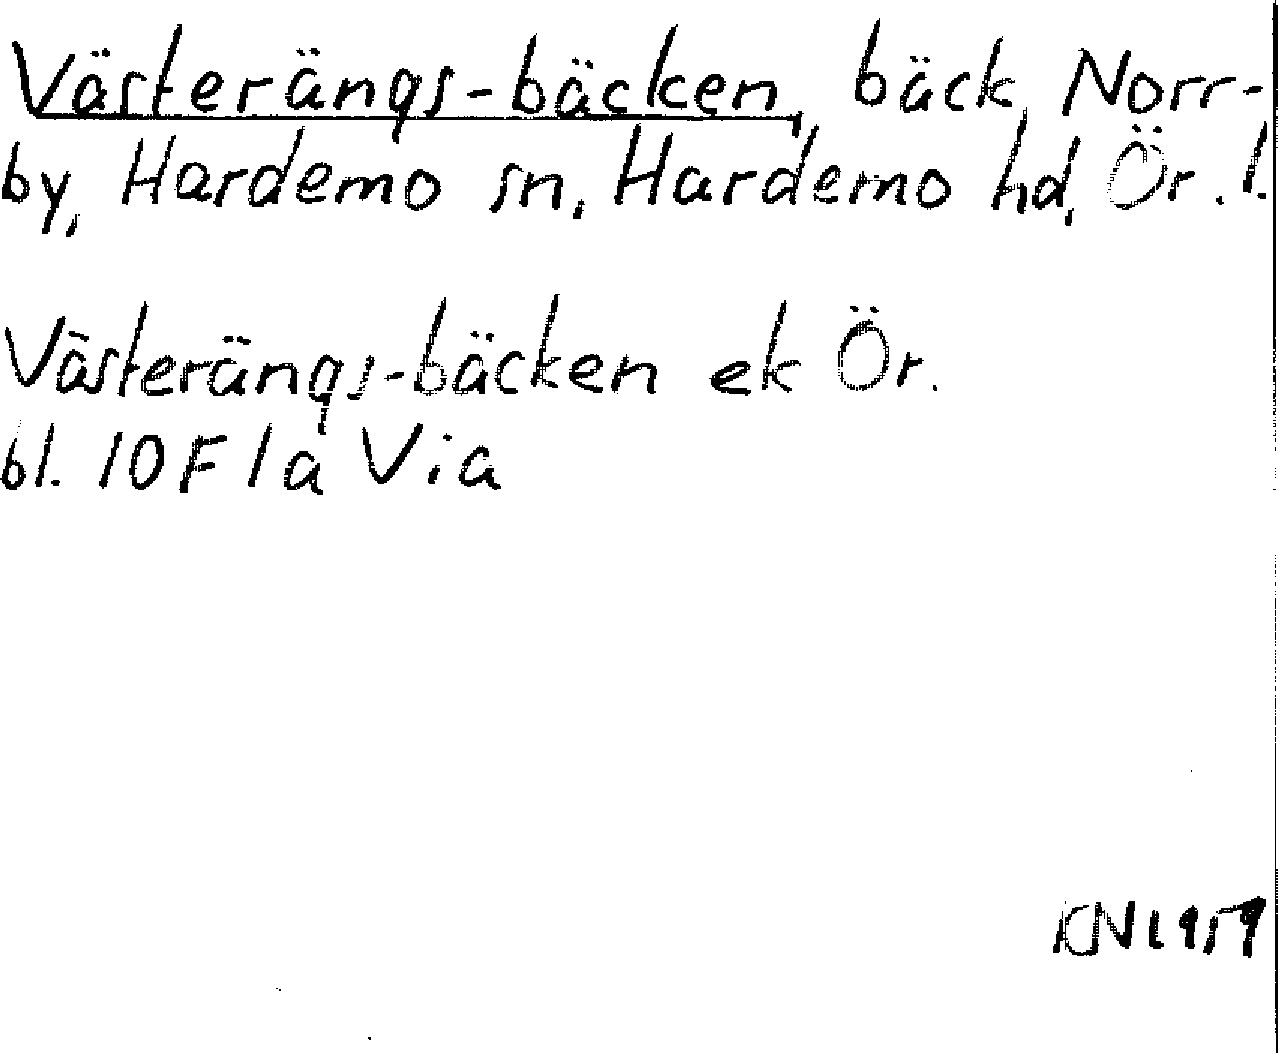 Västerängs-bäcken, bäck, Norr-
by, Hardemo sn, Hardemo hd, Ör. l.
Västerängs-bäcken ek Ör.
bl. 10F1a Via
KN 1959